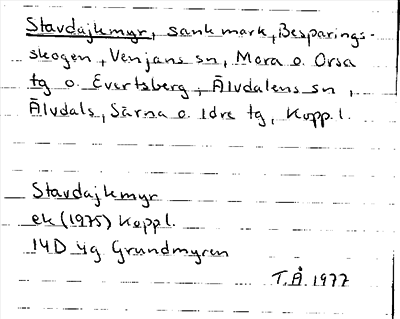 Stavdajkmyr, sank mark, Besparings-
skogen, Venjans sn, Mora o. Orsa
tg o. Evertsberg, Älvdalens sn,
Älvdals, Särna o. Idre tg, Kopp. l.
Stavdajkmyr
ek (1975) Koppl.
14D 4g Grundmyren
T.Å. 1977